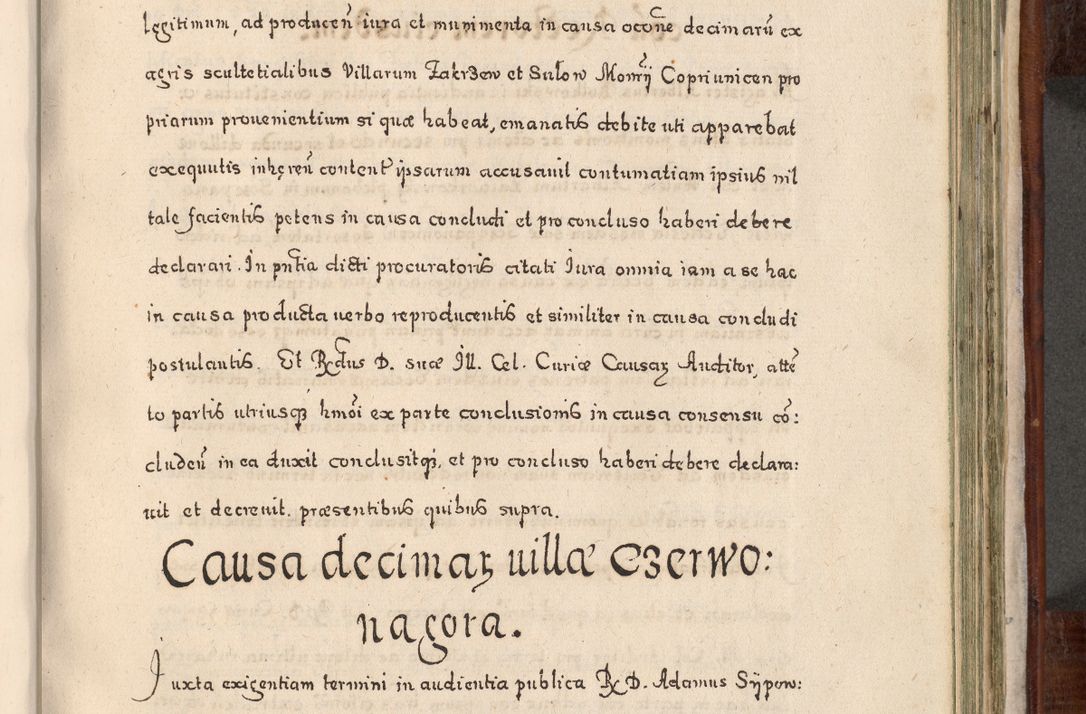 legitimum, ad producen̄ iura et munimenta in causa occne decimarū ex
agris scultetialibus Villarum Zakrzew et Sulow Monrÿ Copriunicen pro
priarum prouenientium si quæ habeat, emanatis debite uti apparebat
exequutis inheren̄ content ipsarum accusauit contumatiam ipsius nil
tale facientis petens in causa concludi et pro concluso haberi debere
declarari. In pn̄tia dicti procuratoris citati Iura omnia iam a se hac
in causa producta uerbo reproducentis et similiter in causa concludi
postulantis. Et Rdus D. suæ Ill. Cel. Curiæ Causaꝝ Auditor, atte
to partis utriusqꝫ hmōi ex parte conclusionis in causa consensu cō:
cluden̄ in ea duxit conclusitqꝫ, et pro concluso haberi debere declara:
uit et decreuit. præsentibus quibus supra.
Causa decimaꝝ uillæ Czerwo:
nagora.
Iuxta exigentiam termini in audientia publica R D. Adamus Sÿpow: